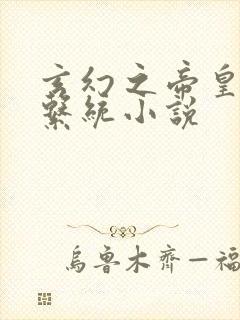 玄幻之帝皇
繫統小說
烏魯木齊—福